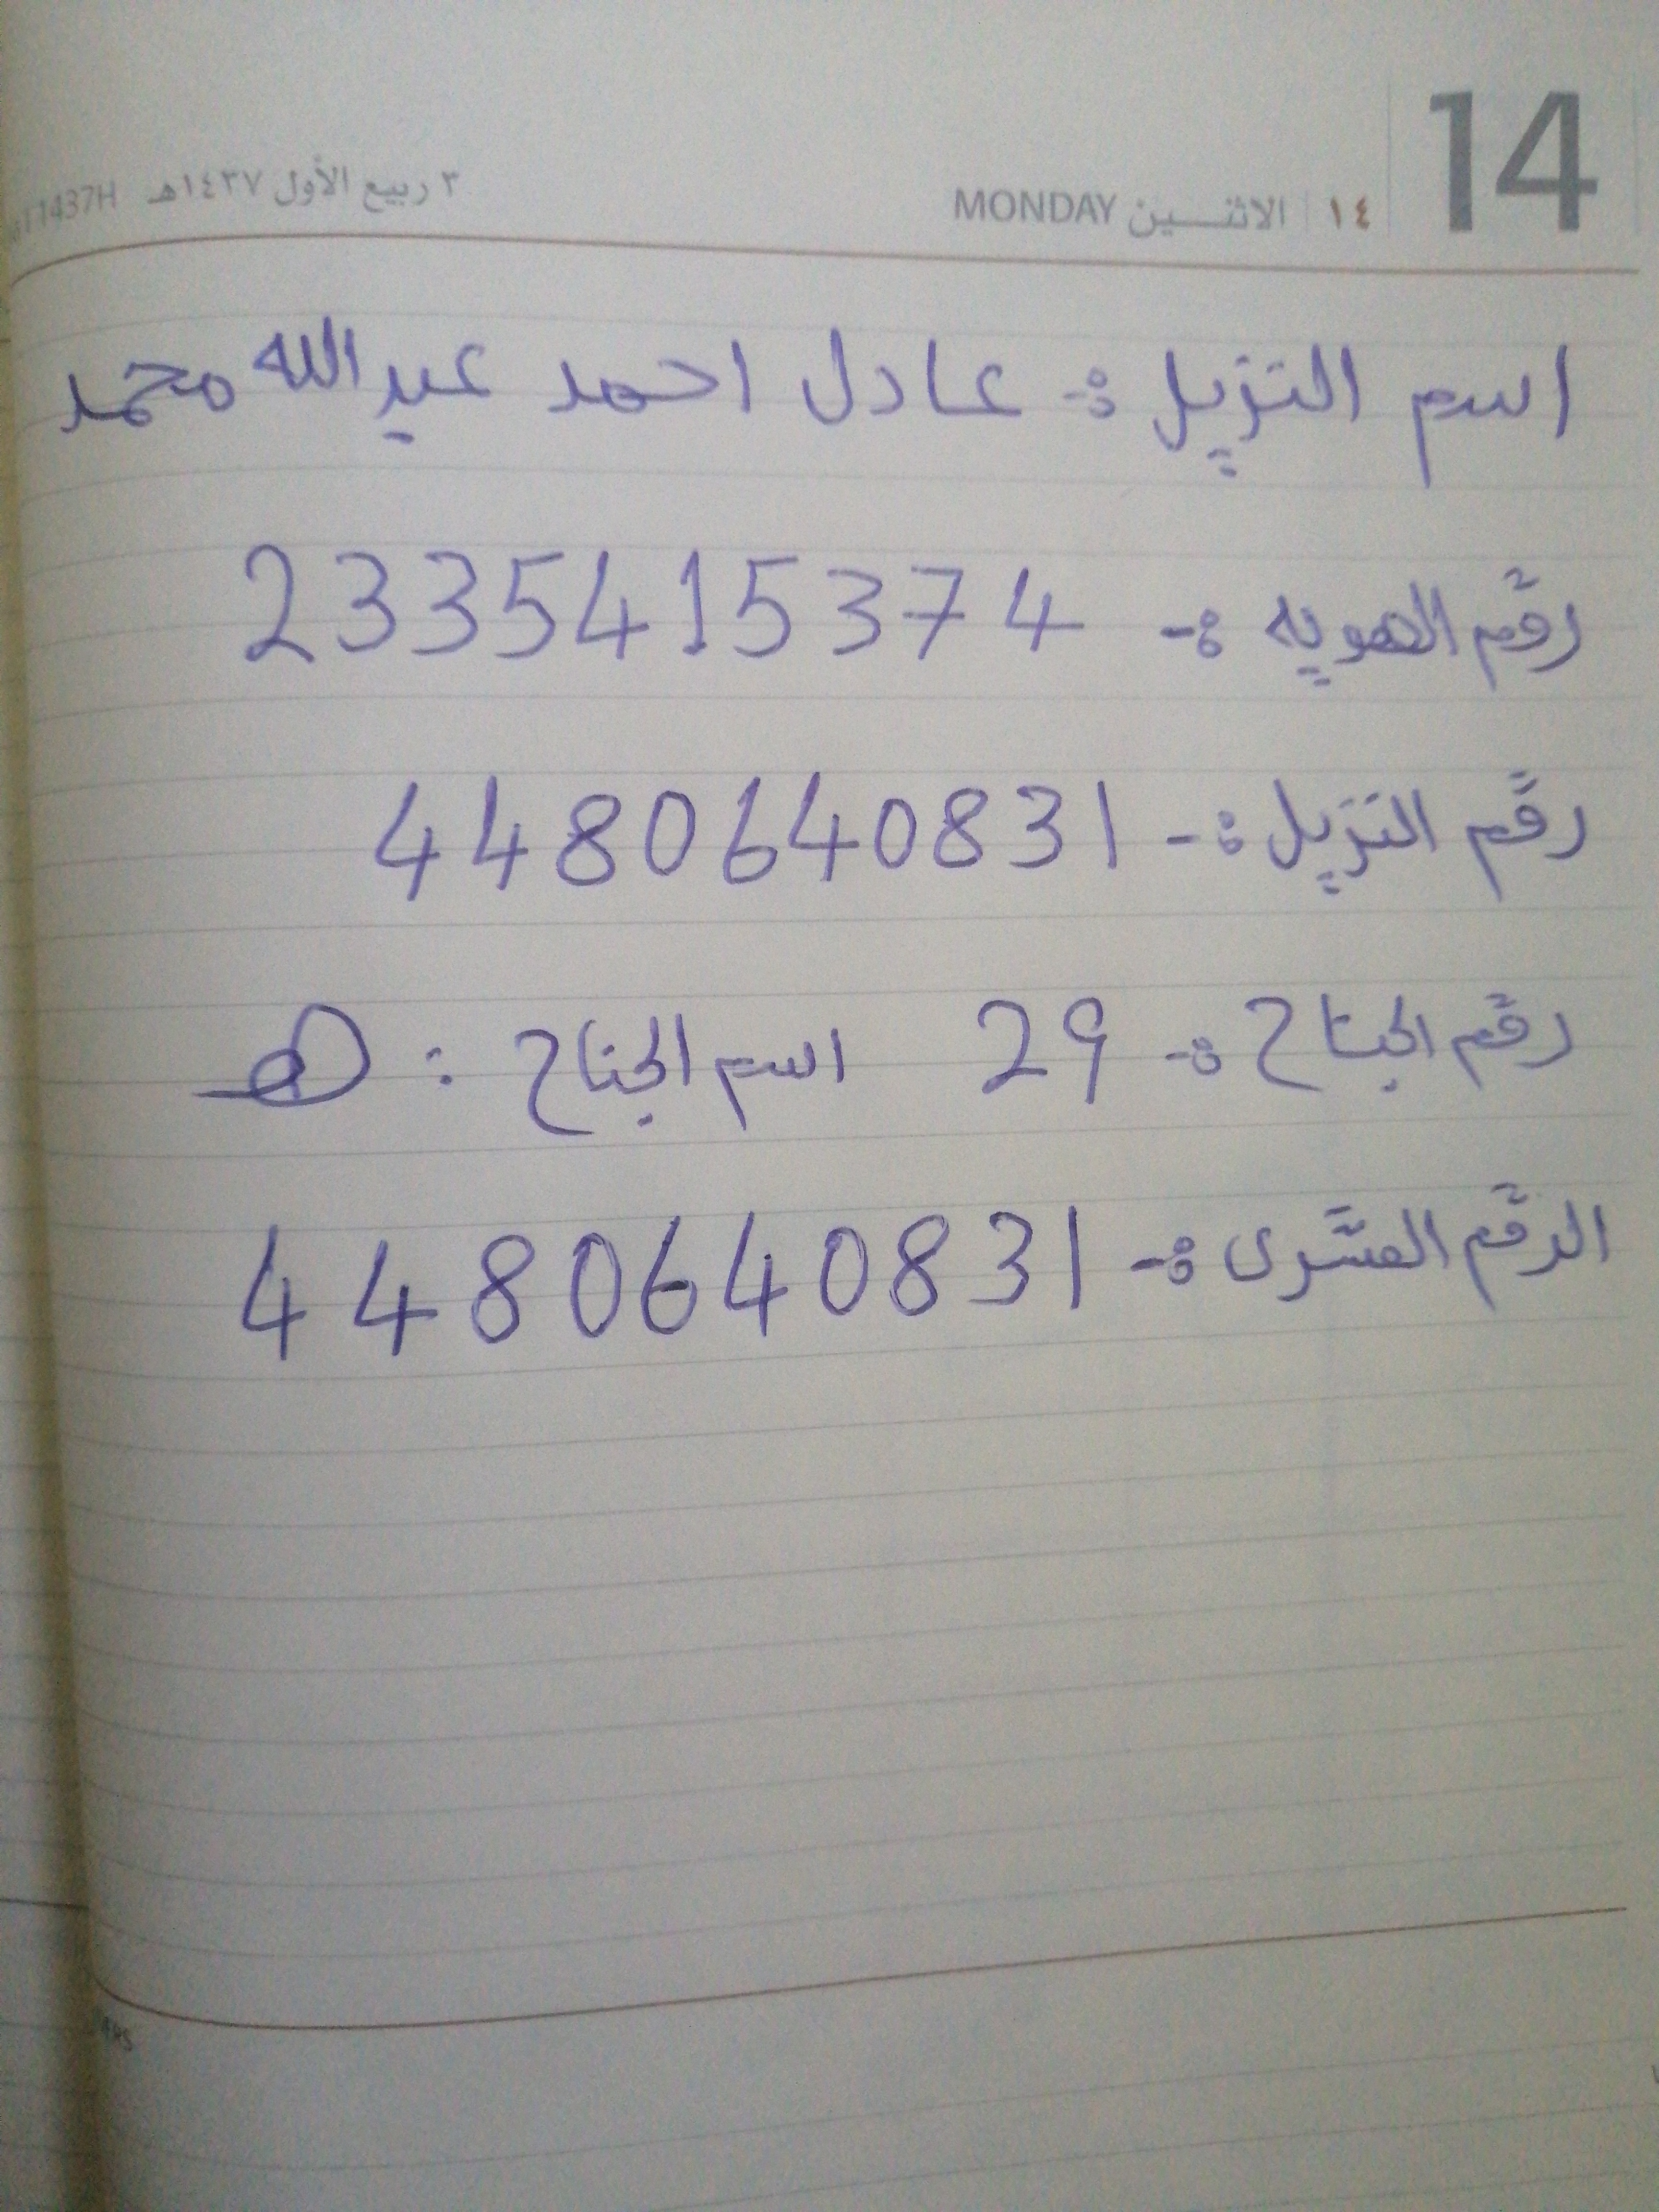 14 | ١٤ | الاثنــــين MONDAY ٣ ربيع الأول ١٤٣٧هـ 1437H
اسم النزيل :- عادل احمد عبدالله محمد
رقم الهويه :- 2335415374
رقم النزيل :- 4480640831
رقم الجناح :- 29 اسم الجناح : هـ
الرقم العشرى :- 4480640831